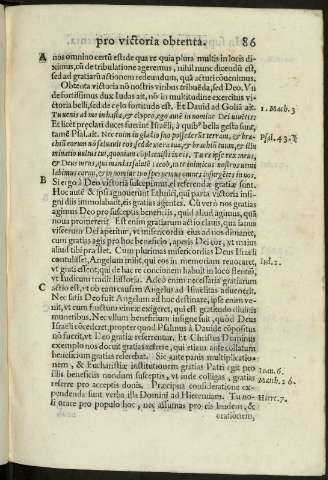 pro victoria obtenta. 86
A nos omnino certũ est de qua re quia plura multis in locis di-
ximus, cũ de tribulatione ageremus, nihil nunc dicendũ est,
sed ad gratiarũ actionem redeundum, quà acturi cõuenimus.
Obtenta victoria nõ nostris viribus tribuẽda, sed Deo. Vn
de fortissimus dux Iudas ait, nõ in multitudine exercitus vi-
ctoria belli, sed de cœlo fortitudo est. Et Dauid ad Goliã ait. 1. Mach. 3
Tu venis ad me in hasta, & clypeo, ego autẽ in nomine Dei inuictus
Et licet præclari duces fuerint Israël, à quibꝰ bella gesta sunt,
tamẽ Psal. ait. Nec enim in gladio suo possederũt terram, & bra- Psal. 43.
chiũ eorum nõ saluauit eos sed dextera tua, & brachiũ tuum, & illu
minatio vultus tui, quoniam cõplacuisti in eis. Tu es ipse rex meus,
& Deus meus, qui mandas salutes Iacob, in te inimicos nostros uenti
labimus cornu, & in nomine tuo spernemus omnes insurgẽtes in nos.
B Si ergo à Deo victoriã suscepimus, ei referendæ gratiæ sunt.
Hoc autẽ & ipsi agnouerunt Ethnici, qui parta victoria insi-
gni diis immolabant, eis gratias agentes. Cũ verò nos gratias
agimus Deo pro susceptis beneficiis, quid aliud agimus, quã
noua promereri? Est enim gratiarum actio clauis, qua sanua
viscerum Dei aperitur, vt misericordia eius ad nos diffundat,
cum gratias agis pro hoc beneficio, aperis Dei cor, vt maius
aliud tibi præstet. Cum plurimas misericordias Deus Israëli
contulisset, Angelum misit, qui eos in memoriam reuocaret,
vt grati essent, qui de hac re concionem habuit in loco flentiũ, Iud. 2.
vt Iudicum tradit historia. Adeò enim necessaria gratiarum
C actio est, vt ob eam causam Angelus ad Israëlitas adueneret.
Nec satis Deo fuit Angelum ad hoc destinare, ipse enim ve-
nit, vt eum factum viuere exigeret, qui est gratitudo diuinis
muneribus, Nec vllum beneficium insigne fuit, quòd Deus
Israëli cõcederet, propter quod Psalmus à Dauide cõpositus
nõ fuerit, vt Deo gratiæ referrentur. Et Christus Dominus
exemplo nos docuit gratias referre, qui etiam ante collatum
beneficium gratias referebat. Sic ante panis multiplicatio-
nem, & Eucharistiæ institutionem gratias Patri egit pro Ioan. 6.
illis beneficiis nondum susceptis, vt inde colligas, gratias Math. 26.
referre pro acceptis donis. Præcipua consideratione ex-
pendenda sunt verba illa Domini ad Hieremiam. Tu no- Hiere. 7.
li orare pro populo hoc, nec assumas pro eis laudem, &
orationem,